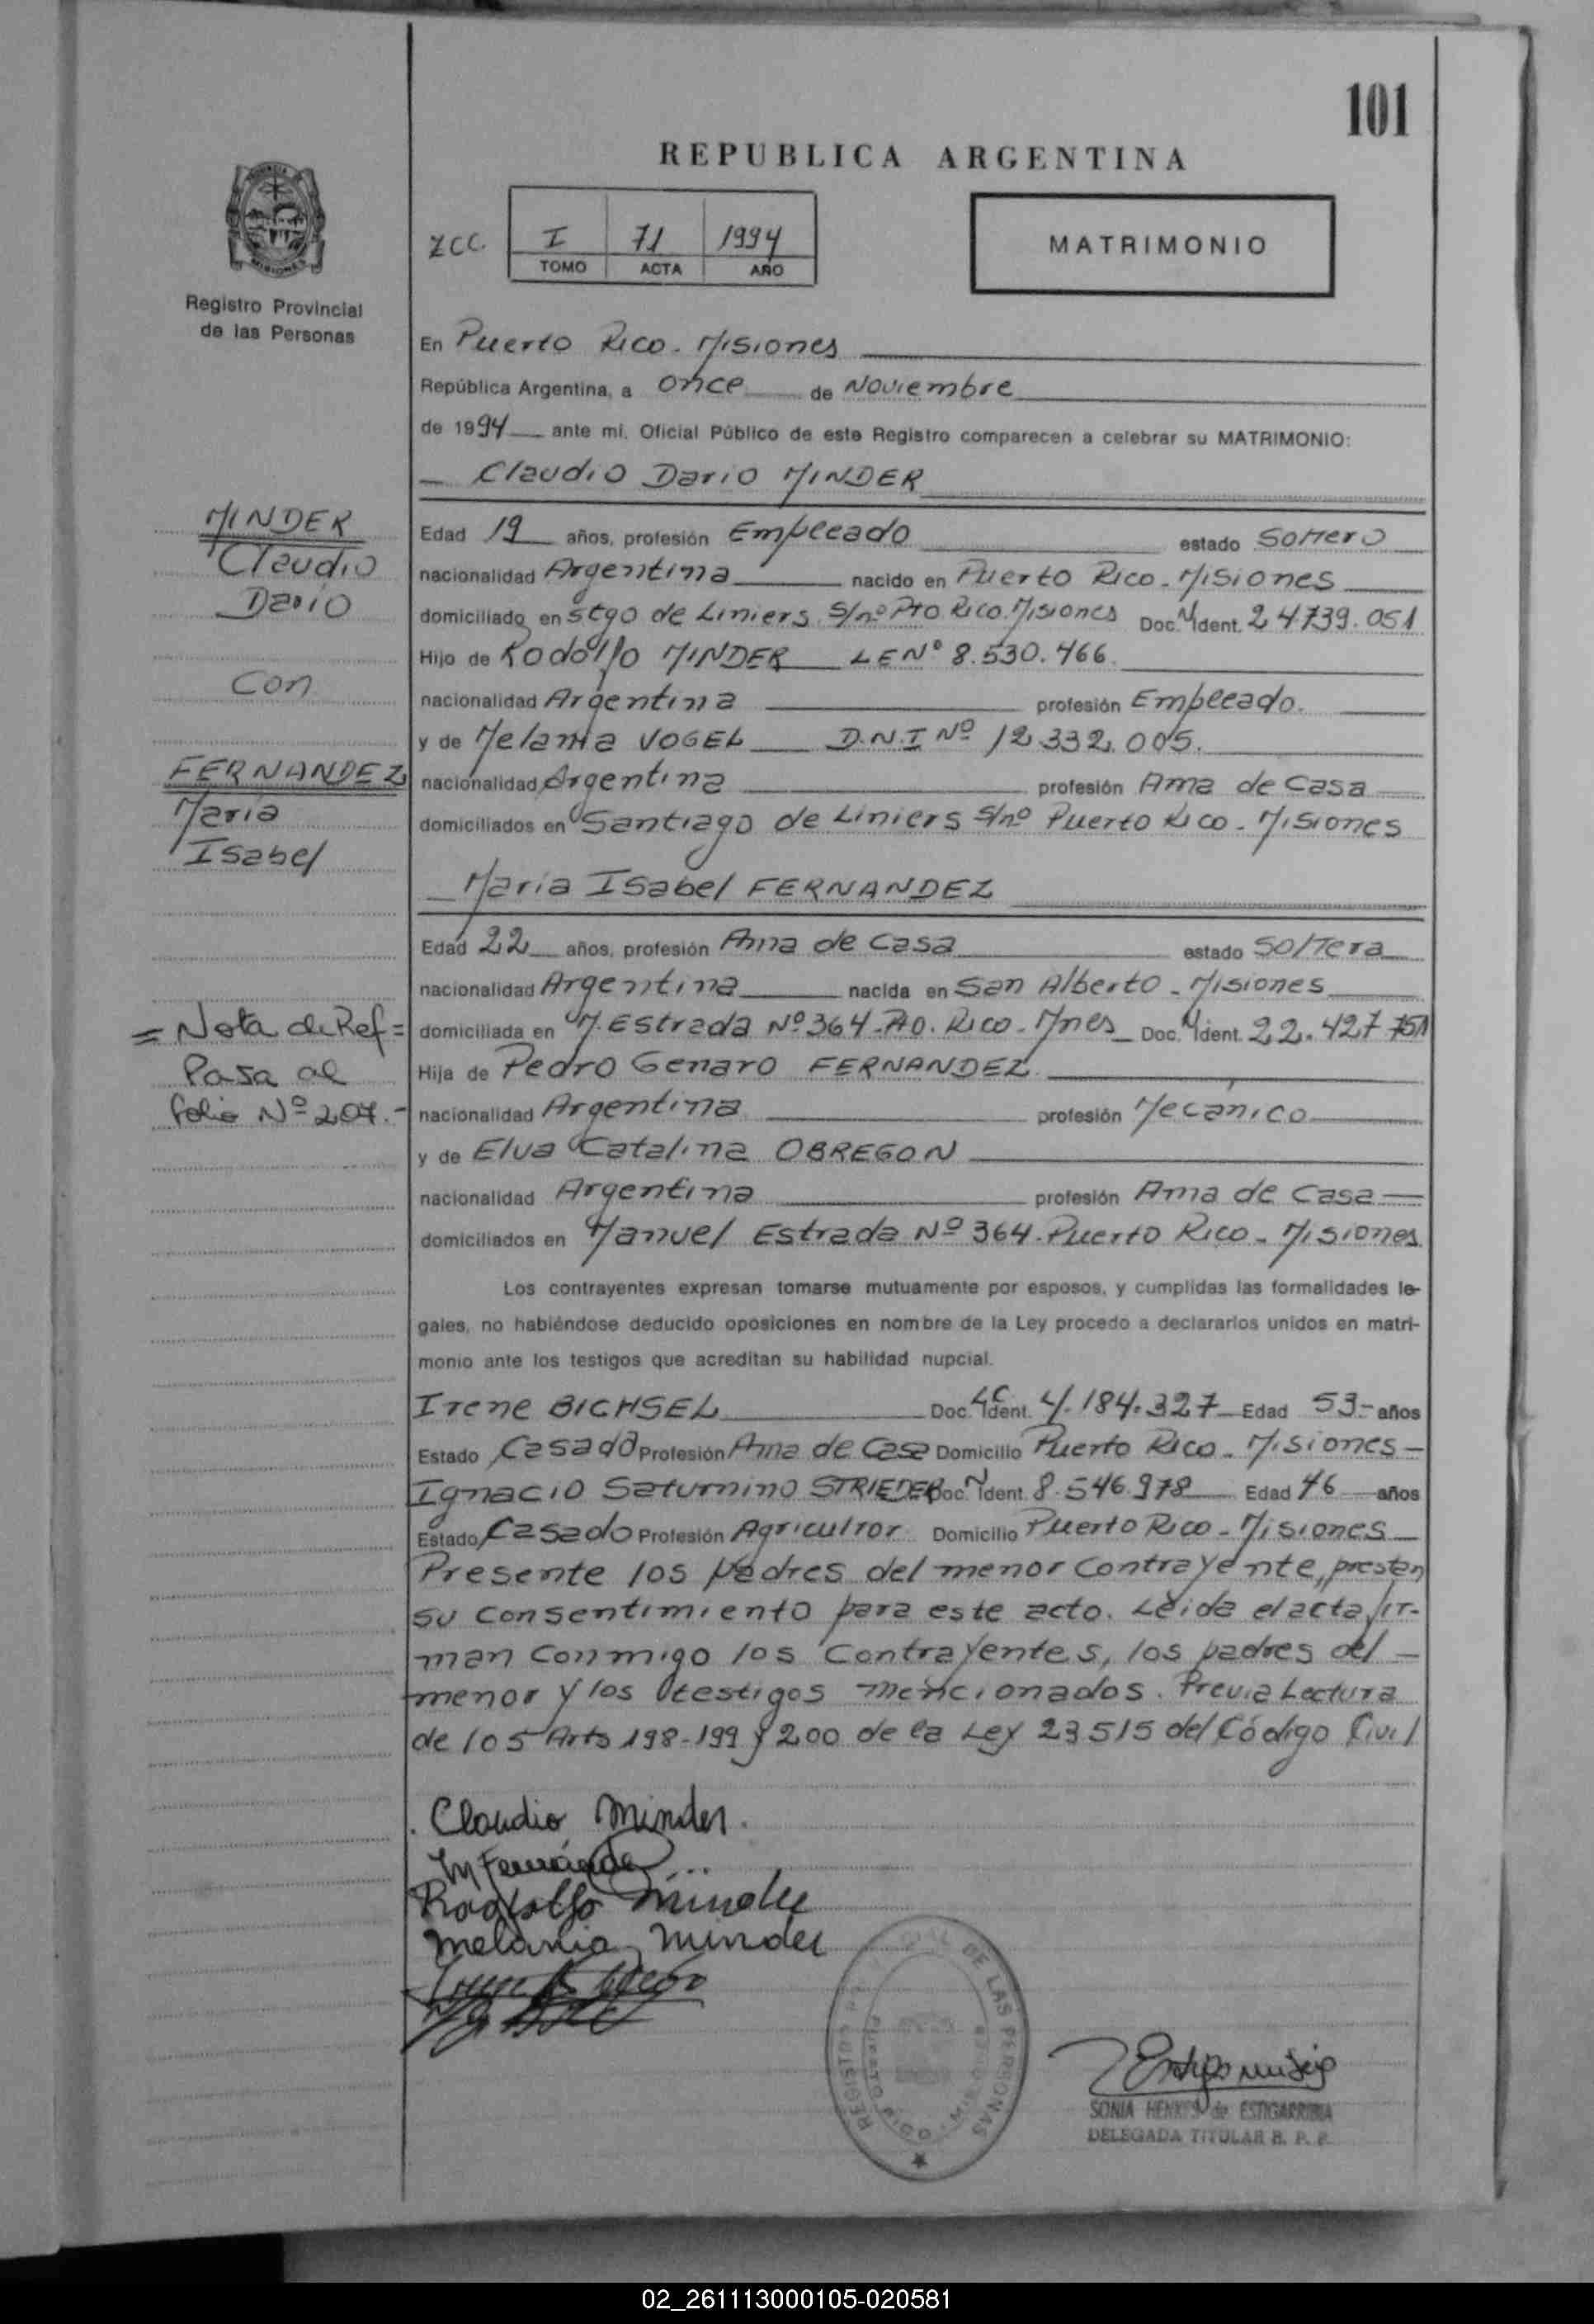 101
REPUBLICA ARGENTINA
ZCC. I 71 1994
TOMO ACTA AÑO
MATRIMONIO
MISIONES
Registro Provincial
de las Personas
En Puerto Rico - Misiones
República Argentina, a once de Noviembre
de 1994 ante mi, Oficial Público de este Registro comparecen a celebrar su MATRIMONIO:
Claudio Dario MINDER
Edad 19 años, profesión Empleado estado Soltero
nacionalidad Argentina nacido en Puerto Rico - Misiones
domiciliado en Stgo de Liniers S/nº Pto Rico. Misiones Doc. Ident. 24739.051
Hijo de Rodolfo MINDER LE Nº 8.530.466.
nacionalidad Argentina profesión Empleado.
y de Melania VOGEL D.N.I Nº 12.332.005.
nacionalidad Argentina profesión Ama de Casa
domiciliados en Santiago de Liniers S/nº Puerto Rico - Misiones
Maria Isabel FERNANDEZ
Edad 22 años, profesión Ama de Casa estado Soltera
nacionalidad Argentina nacida en San Alberto - Misiones
domiciliada en M. Estrada Nº 364 - Pto. Rico - Mnes Doc. Ident. 22.427 751
Hija de Pedro Genaro FERNANDEZ
nacionalidad Argentina profesión Mecánico
y de Elva Catalina OBREGON
nacionalidad Argentina profesión Ama de Casa
domiciliados en Manuel Estrada Nº 364 - Puerto Rico - Misiones
Los contrayentes expresan tomarse mutuamente por esposos, y cumplidas las formalidades le-
gales, no habiéndose deducido oposiciones en nombre de la Ley procedo a declararlos unidos en matri-
monio ante los testigos que acreditan su habilidad nupcial.
Irene BICHSEL Doc. LC Ident. 4.184.327 Edad 53.- años
Estado Casada Profesión Ama de Casa Domicilio Puerto Rico - Misiones
Ignacio Saturnino STRIEDER Doc. Ident. 8.546.978 Edad 46 años
Estado Casado Profesión Agricultor Domicilio Puerto Rico - Misiones
Presente los padres del menor contrayente, prestan
su consentimiento para este acto. Leida el acta fir-
man conmigo los contrayentes, los padres del
menor y los testigos mencionados. Previa Lectura
de los Arts 198-199 y 200 de la Ley 23515 del Código Civil
MINDER
Claudio
Dario
Con
FERNANDEZ
Maria
Isabel
= Nota de Ref =
Pasa al
folio Nº 207.-
Claudio Minder.
M Fernández
Rodolfo Minder
Melania Minder
DE LAS PERSONAS
SONIA HENKES de ESTIGARRIBIA
DELEGADA TITULAR R. P. P.
02_261113000105-020581